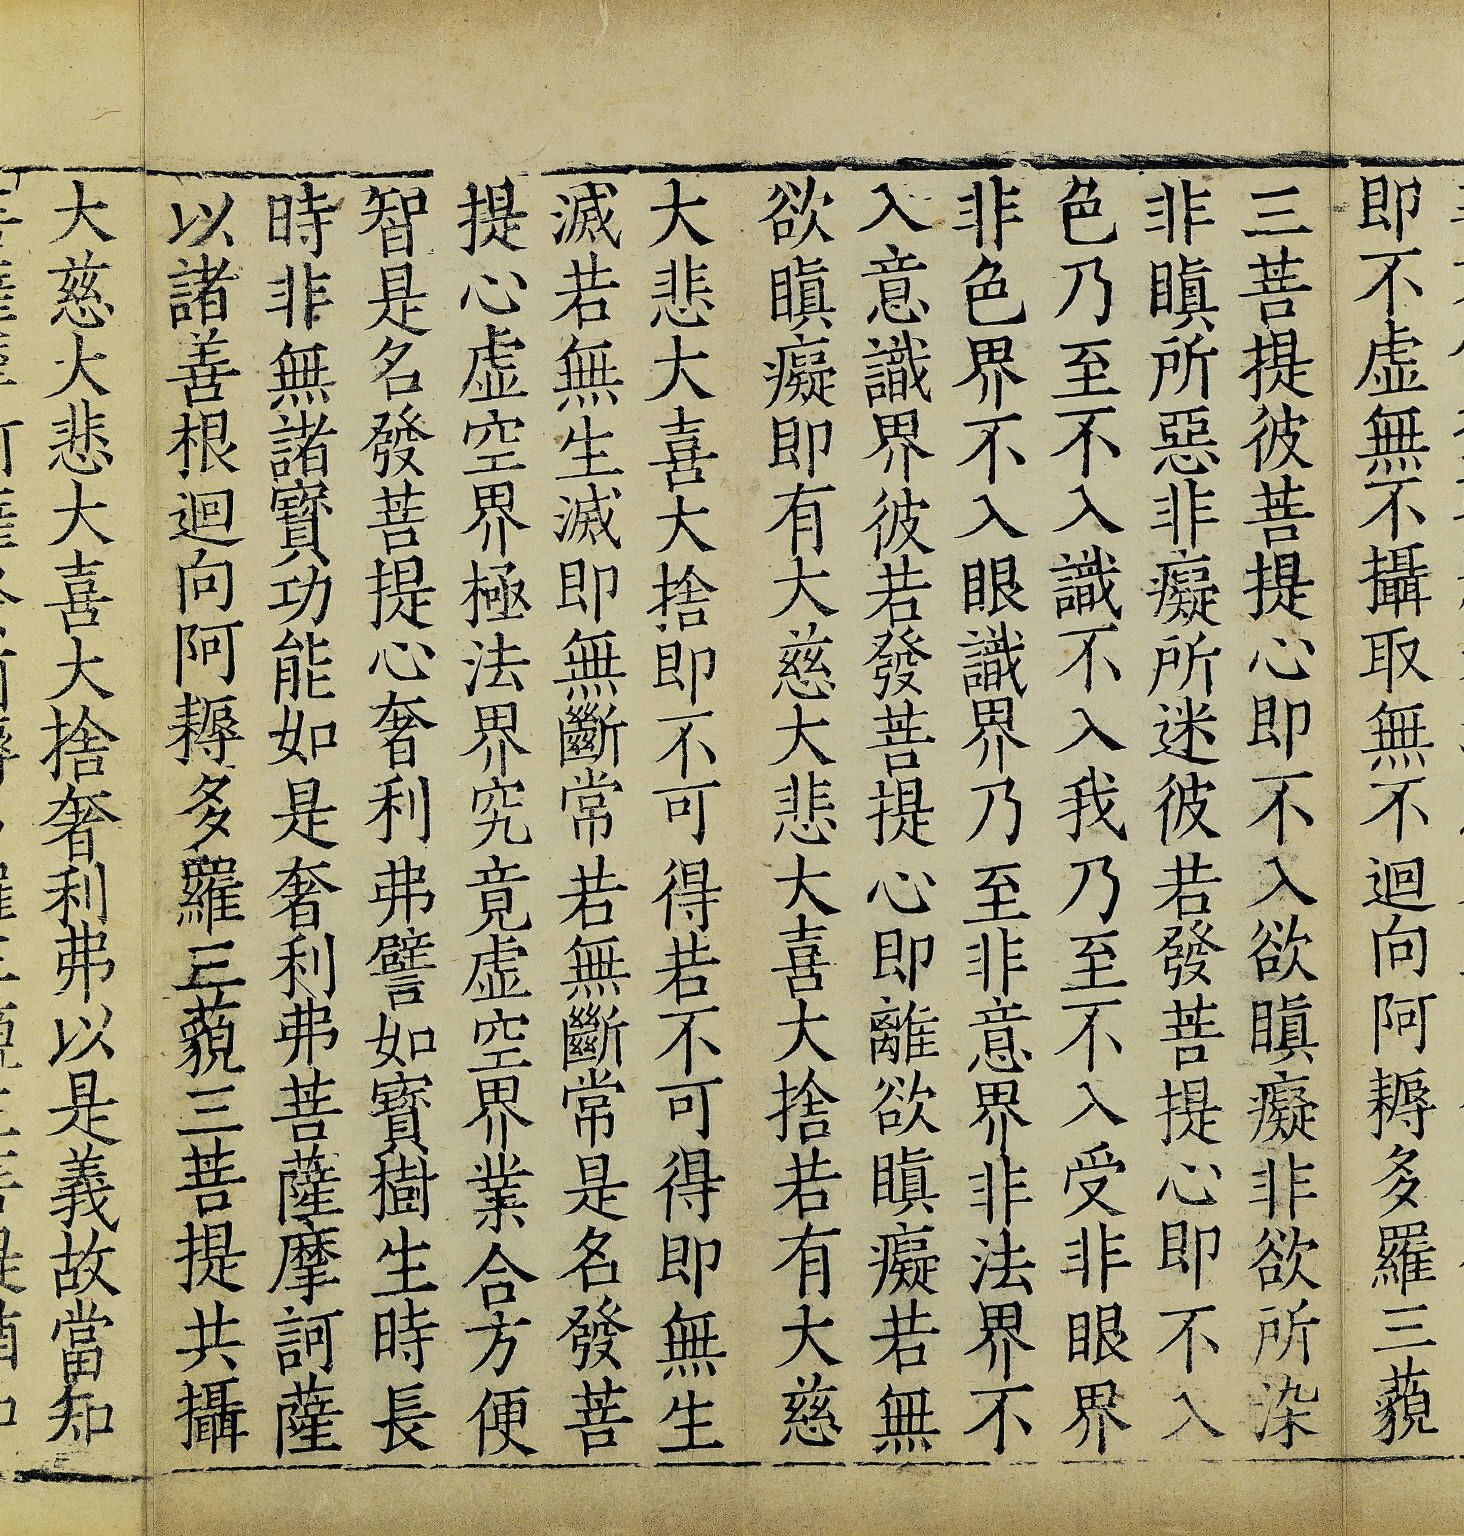 即不虛無不攝取無不迴向阿耨多羅三藐
三菩提彼菩提心即不入欲瞋癡非欲所染
非瞋所惡非癡所迷彼若發菩提心即不入
色乃至不入識不入我乃至不入受非眼界
非色界不入眼識界乃至非意界非法界不
入意識界彼若發菩提心即離欲瞋癡若無
欲瞋癡即有大慈大悲大喜大捨若有大慈
大悲大喜大捨即不可得若不可得即無生
滅若無生滅即無斷常若無斷常是名發菩
提心虛空界極法界究竟虛空界業合方便
智是名發菩提心奢利弗譬如寶樹生時長
時非無諸寶功能如是奢利弗菩薩摩訶薩
以諸善根迴向阿耨多羅三藐三菩提共攝
大慈大悲大喜大捨奢利弗以是義故當知